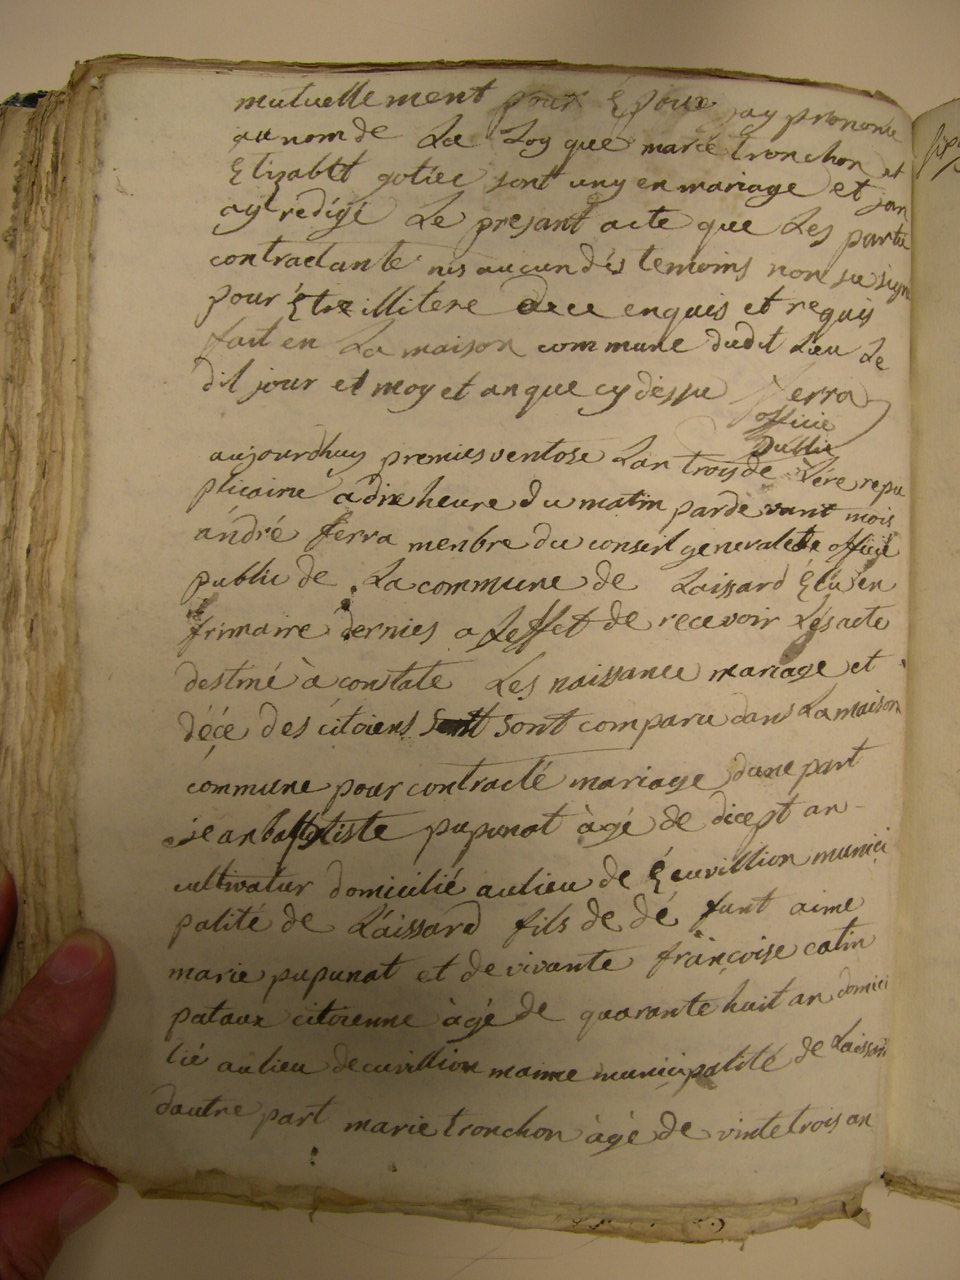 mutuellement pour Époux jay prononcé
au nom de La Loy que marie tronchon et
Elizabet gotiee sont uny en mariage et jan
ayt redigé Le presant acte que Les partie
contractante nis aucun dés temoins non su signe
pour Étre illitere dece enquis et requis
fait en La maison commune dudit Lieu Le
dit jour et moy et an que cy dessu ferra
officie
publie
aujourdhuy premies ventose Lan trois de Lére repu
plicaine a dix heure du matin pardevant mois
andré ferra menbre du conseil generalete officie
public de La commune de Laissard Élu en
frimaire dernies a Leffet de recevoir Lés acte
destiné à constate Les naissance mariage et
décé des citoiens sont comparu dans La maison
commune pour contracté mariage dune part
jean baptiste pupunat àgé de dicept an
cultivatur domicilié au lieu de Écuvillion munici
palité de Láissard fils de dé funt aime
marie pupunat et de vivante françoise catin
pataux citoienne àgé de quarante huit an domici
lié au lieu decuvillion maime municipalité de Laissard
dautre part marie tronchon àgé de vinte trois an